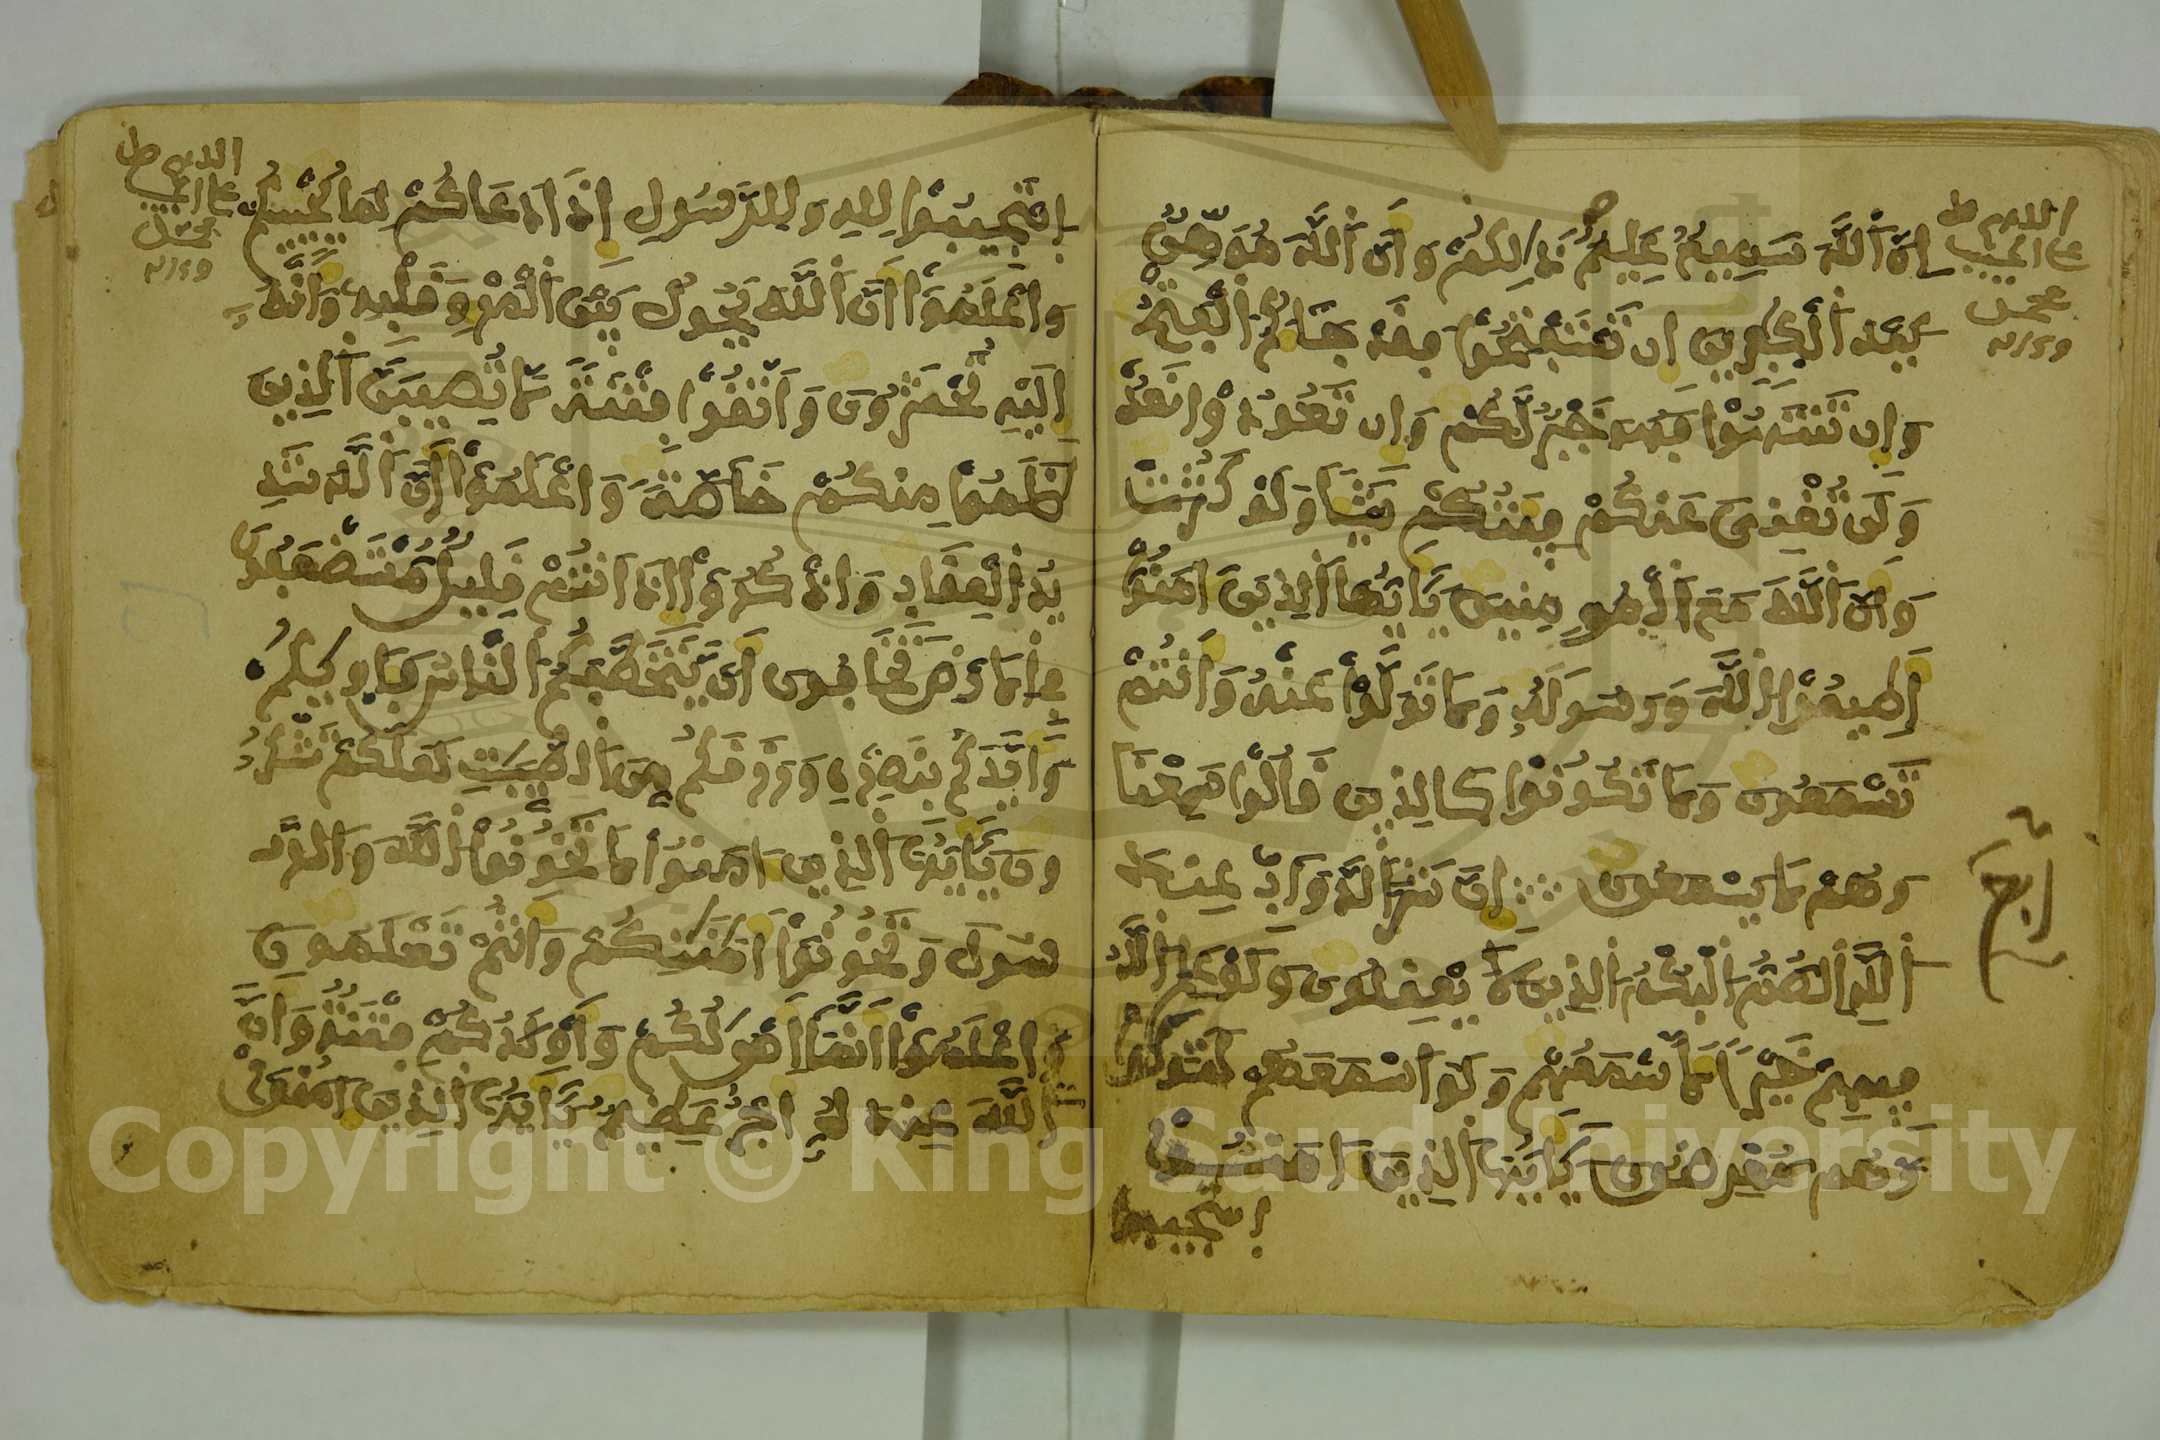 إن الله سميع عليم ذلكم وأن الله موهن
كيد الكفرين إن تستفتحوا فقد جاءكم الفتح
وإن تنتهوا فهو خير لكم وإن تعودوا نعد
ولن تغني عنكم فئتكم شيئا ولو كثرت
وأن الله مع المومنين يأيها الذين امنوا
أطيعوا الله ورسوله ولا تولوا عنه وأنتم
تسمعون ولا تكونوا كالذين قالوا سمعنا
وهم لا يسمعون إن شر الدواب عند
الله الصم البكم الذين لا يعقلون ولو علم الله
فيهم خيرا لأسمعهم ولو أسمعهم لتولوا
وهم معرضون يأيها الذين امنوا
استجيبوا
استجيبوا لله وللرسول إذا دعاكم لما يحييكم
واعلموا أن الله يحول بين المرء وقلبه وأنه
إليه تحشرون واتقوا فتنة لا تصيبن الذين
ظلموا منكم خاصة واعلموا أن الله شد
يد العقاب واذكروا إذ أنتم قليل مستضعفون
في الأرض تخافون أن يتخطفكم الناس فأويكم
وأيدكم بنصره ورزقكم من الطيبت لعلكم تشكر
ون يأيها الذين امنوا لا تخونوا الله والر
سول وتخونوا أمنتكم وأنتم تعلمون
واعلموا أنما أمولكم وأولدكم فتنة وأن
الله عنده أجر عظيم يأيها الذين امنوا
Copyright © King Saud University